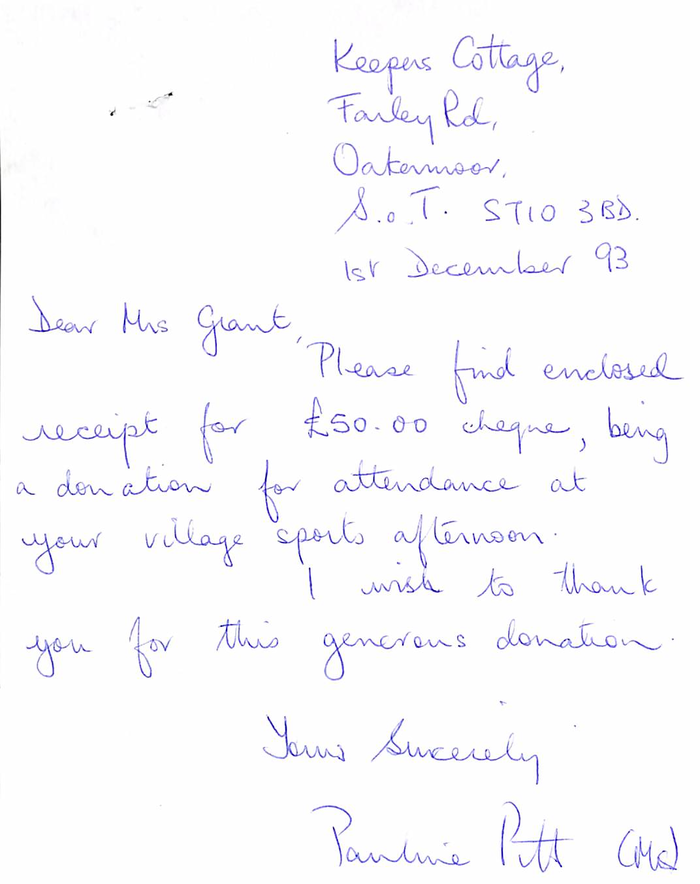 Keepers Cottage,
Farley Rd,
Oakamoor,
S.o.T. ST10 3BD.
1st December 93
Dear Mrs Grant,
Please find enclosed
receipt for £50.00 cheque, being
a donation for attendance at
your village sports afternoon.
I wish to thank
you for this generous donation.
Yours Sincerely
Pauline Pitt (Ms)